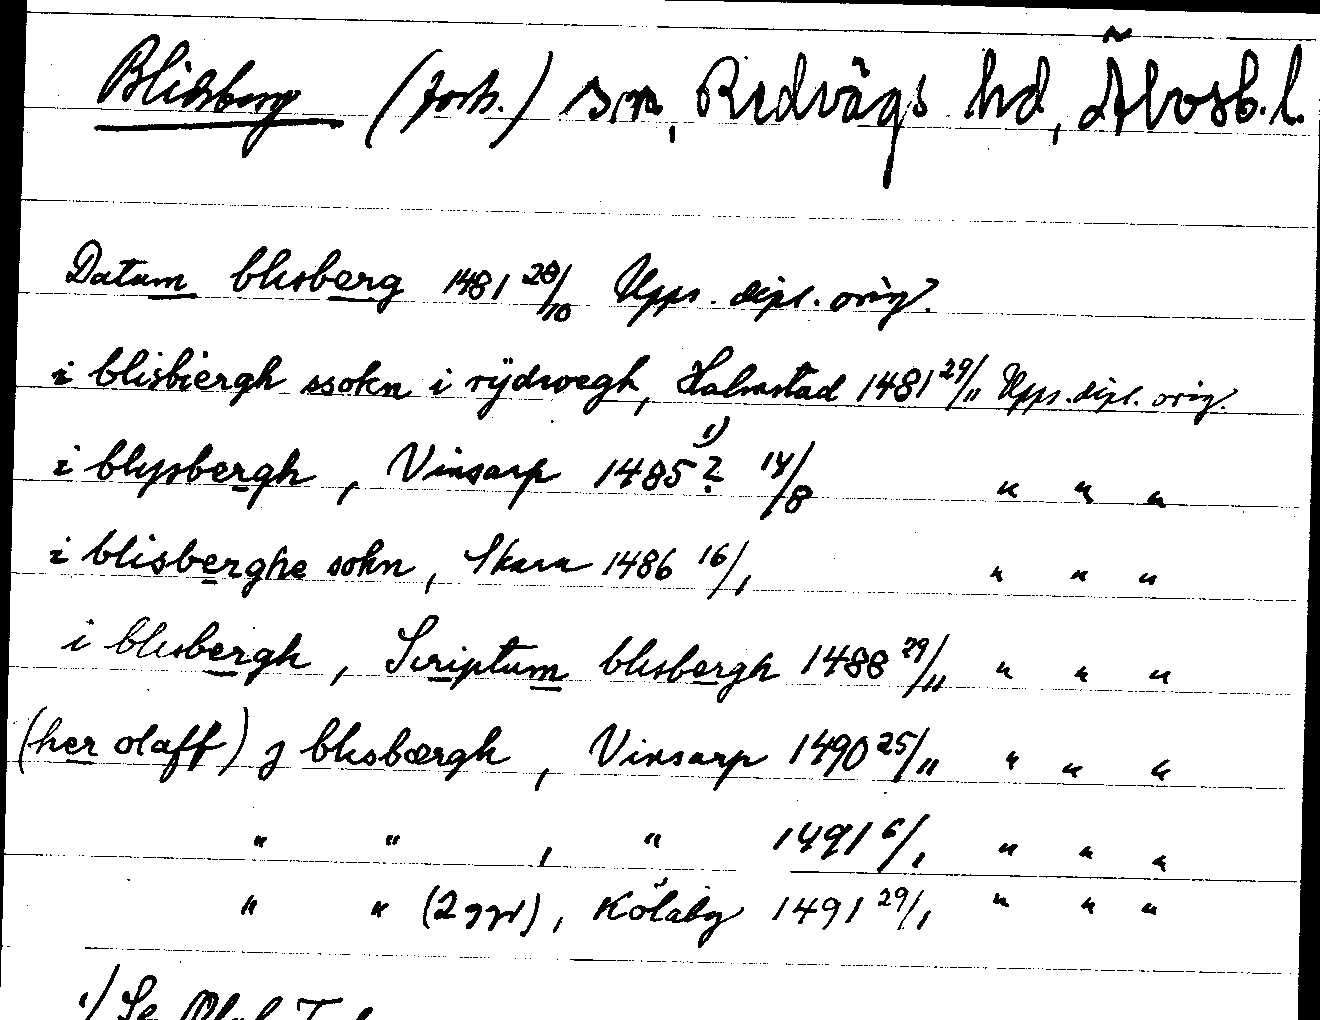 Blidsberg (forts.) sn, Redvägs hd, Älvsb. l.
Datum blisberg 1481 28/10 Upps. dipl. orig.
i blisbiergh ssokn i rÿdwegh, Halmstad 1481 29/11 Upps. dipl. orig.
i blysbergh, Vinsarp 1485 ? 1) 14/8 " " "
i blisberghe sokn, Skara 1486 16/1 " " "
i blisbergh, Scriptum blisbergh 1488 29/11 " " "
(her olaff) j blisbærgh, Vinsarp 1490 25/11 " " "
" " , " 1491 6/1 " " "
" " (2 ggr), Kölaby 1491 29/1 " " "
1) Se